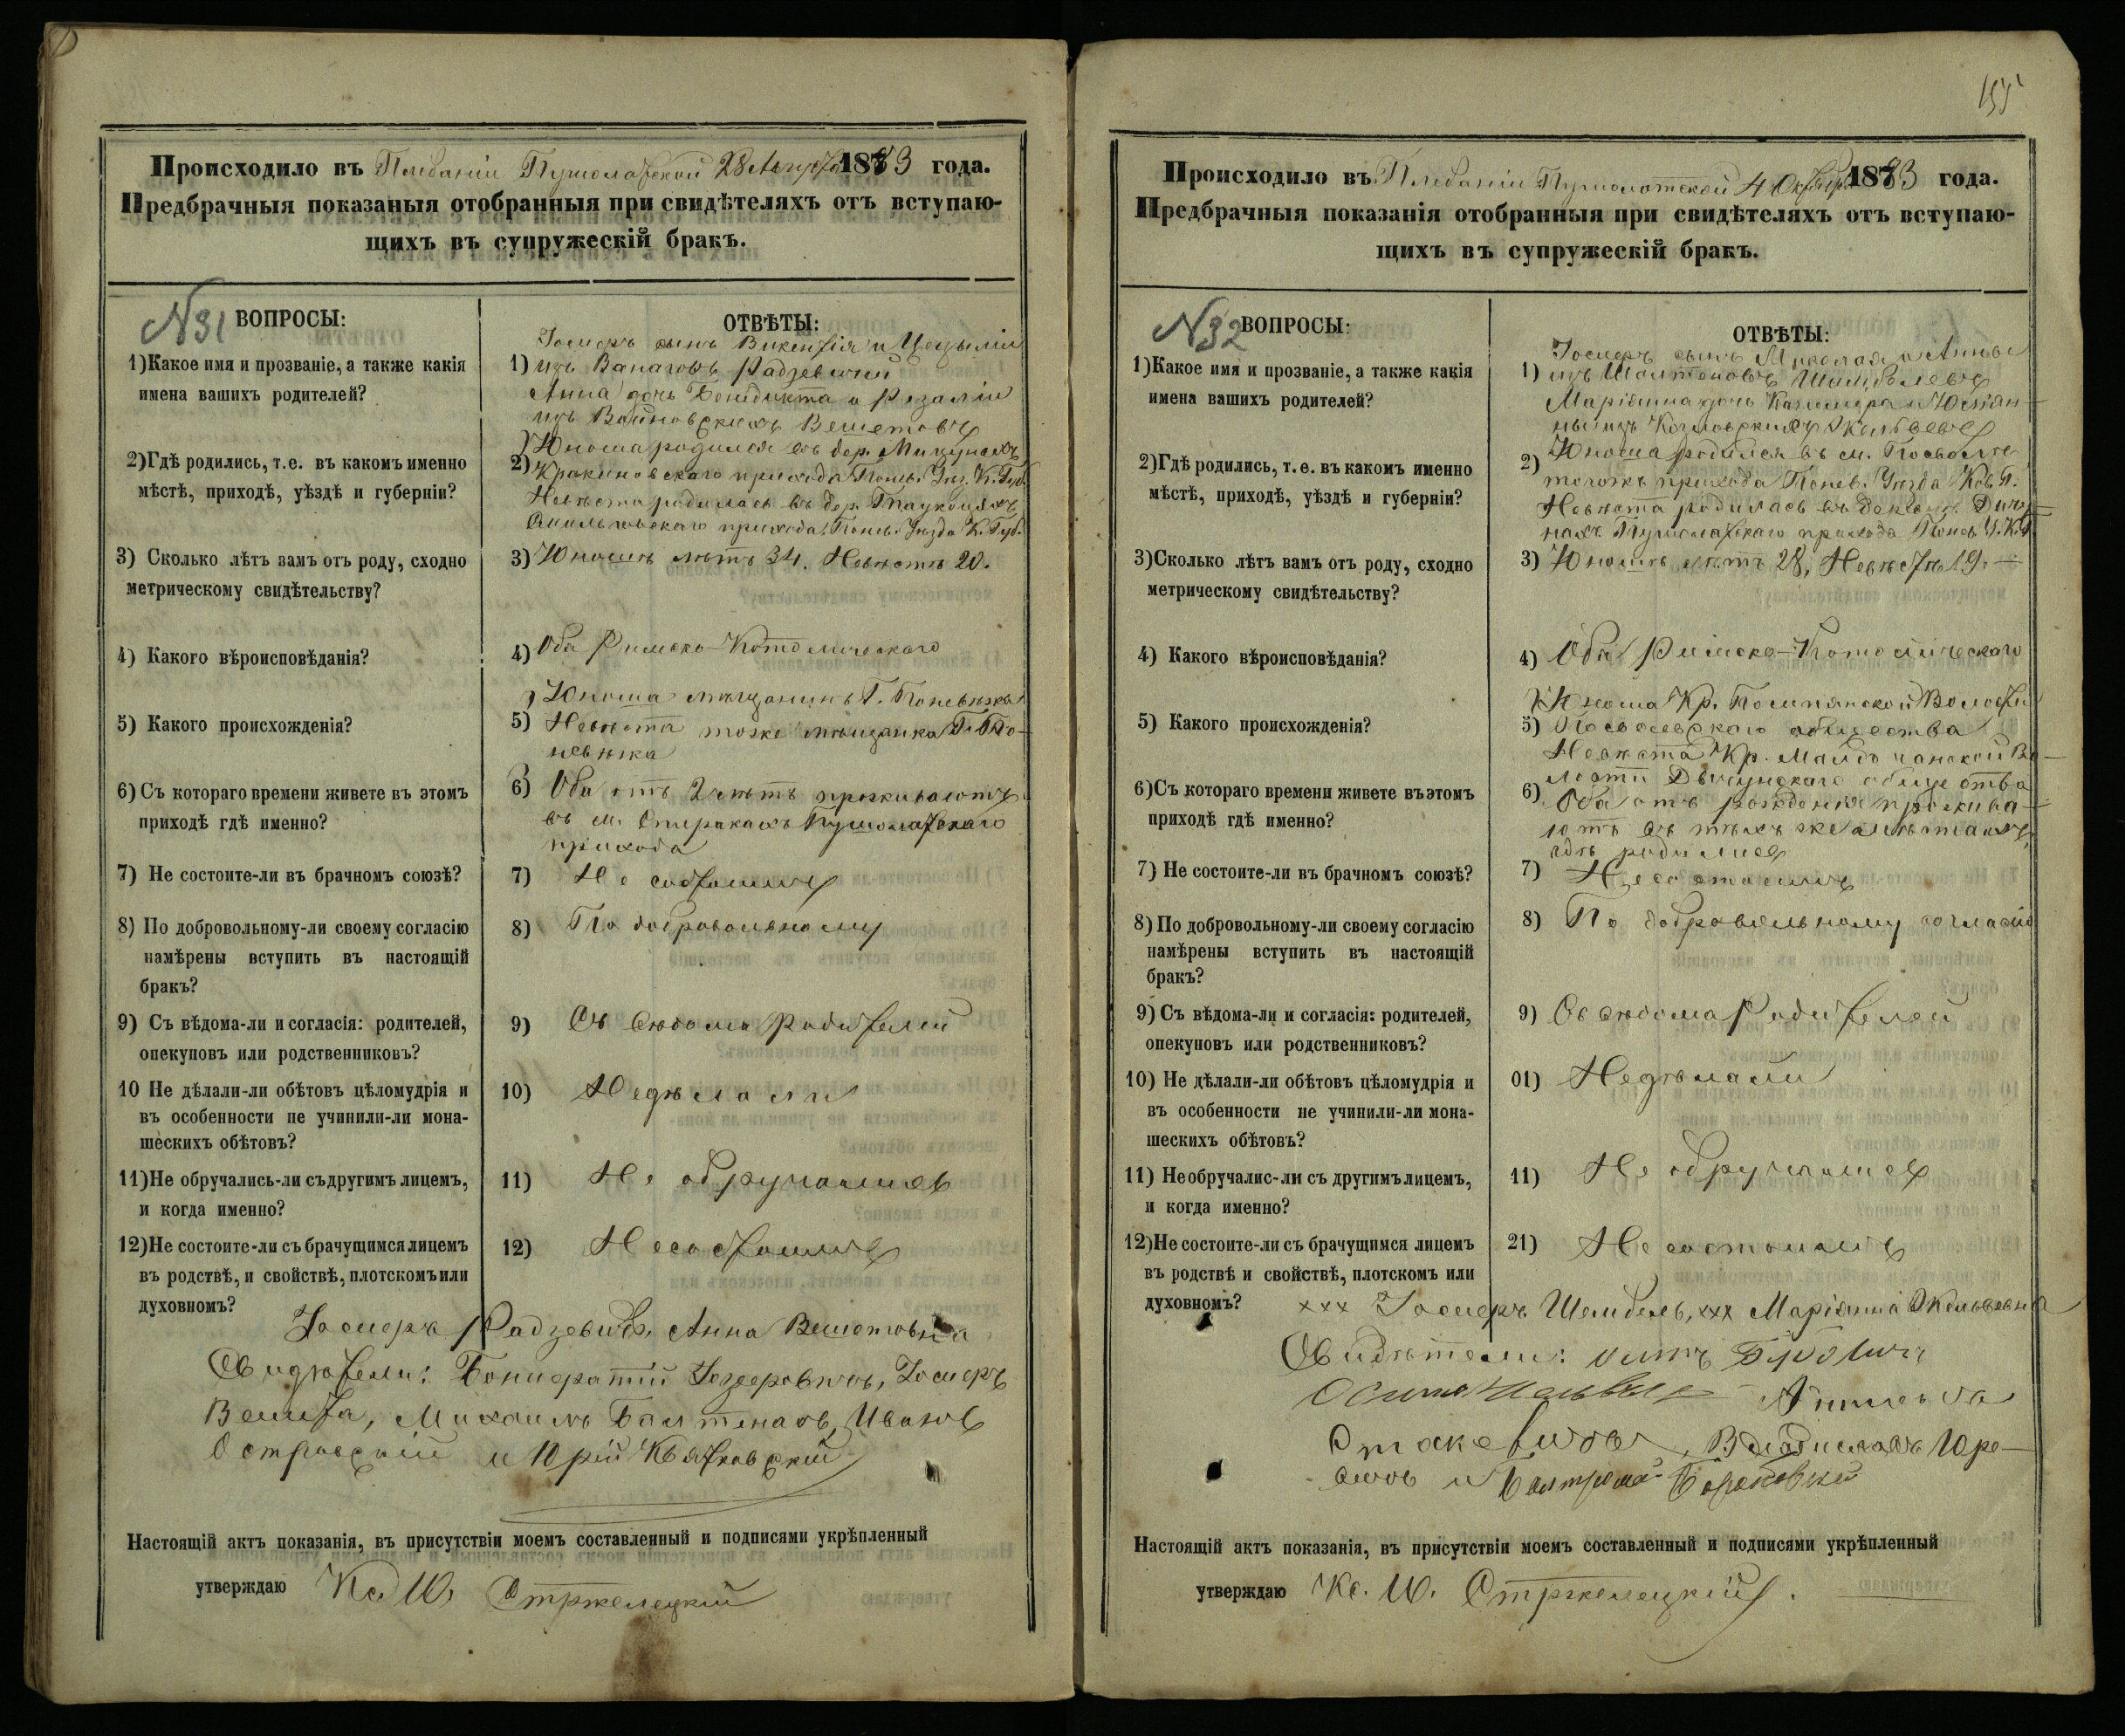 Происходило въ Плебаніи Пушолатской 28 Августа 1883 года.
Предбрачныя показаныя отобранныя при свидѣтеляхъ отъ вступаю-
щихъ въ супружескій бракъ.
N 31
ВОПРОСЫ:
ОТВѢТЫ:
1) Какое имя и прозваніе, а также какія
имена вашихъ родителей?
1) Іосифъ сынъ Викентія и Цецыліи
изъ Ванаговъ Радзевичъ
Анна дочь Бенедикта и Розаліи
изъ Войновскихъ
2) Гдѣ родились, т.е. въ какомъ именно
мѣстѣ, приходѣ, уѣздѣ и губерніи?
2) Юноша родился въ дер.
Кракиновскаго прихода Понев. Уѣз. К. Губ.
Невѣста родилась въ дер.
прихода Понев. Уѣзда К. Губ.
3) Сколько лѣтъ вамъ отъ роду, сходно
метрическому свидѣтельству?
3) Юношѣ лѣтъ 34. Невѣстѣ 20.
4) Какого вѣроисповѣданія?
4) Оба Римско-Католическаго
5) Какого происхожденія?
5) Юноша мѣщанинъ Г. Поневѣжа
Невѣста тоже мѣщанка Г. По-
невѣжа
6) Съ котораго времени живете въ этомъ
приходѣ гдѣ именно?
6) Оба отъ 2 лѣтъ проживаютъ
въ м. Пушолатскаго
прихода
7) Не состоите-ли въ брачномъ союзѣ?
7) Не состоимъ
8) По добровольному-ли своему согласію
намѣрены вступить въ настоящій
бракъ?
8) По добровольному
9) Съ вѣдома-ли и согласія: родителей,
опекуновъ или родственниковъ?
9) Съ вѣдома Родителей
10 Не дѣлали-ли обѣтовъ цѣломудрія и
въ особенности не учинили-ли мона-
шескихъ обѣтовъ?
10) Недѣлали
11) Не обручались-ли съ другимъ лицемъ,
и когда именно?
11) Не обручались
12) Не состоите-ли съ брачущимся лицемъ
въ родствѣ, и свойствѣ, плотскомъ или
духовномъ?
12) Несостоимъ
Іосифъ Радзевичъ, Анна
Свидѣтели: Іосифъ
Михаилъ Балтенасъ, Иванъ
Островскій и Юрій Квятковскій
Настоящій актъ показанія, въ присутствіи моемъ составленный и подписями укрѣпленный
утверждаю Кс. Ю. Стржелецкій
155
Происходило въ Плебаніи Пушолотской 4 Октября 1883 года.
Предбрачныя показанія отобранныя при свидѣтеляхъ отъ вступаю-
щихъ въ супружескій бракъ.
N 32
ВОПРОСЫ:
ОТВѢТЫ:
1) Какое имя и прозваніе, а также какія
имена вашихъ родителей?
1) Іосифъ сынъ Миколая и Анны
изъ
Маріанна дочь Казимира и Юліан-
ны изъ Козловскихъ
2) Гдѣ родились, т.е. въ какомъ именно
мѣстѣ, приходѣ, уѣздѣ и губерніи?
2) Юноша родился въ м. Посволѣ
тогожъ прихода Понев. Уѣзда Ков. Г.
Невѣста родилась въ
Пушолатскаго прихода Понев. У. К. Г.
3) Сколько лѣтъ вамъ отъ роду, сходно
метрическому свидѣтельству?
3) Юношѣ лѣтъ 28, Невѣстѣ 19.
4) Какого вѣроисповѣданія?
4) Оба Римско-Католическаго
5) Какого происхожденія?
5) Юноша Кр. Волости
Посвольскаго общества
Невѣста Кр. Во-
лости общества
6) Съ котораго времени живете въ этомъ
приходѣ гдѣ именно?
6) Оба отъ рожденія прожива-
ютъ въ тѣхъ же мѣстахъ,
гдѣ родились
7) Не состоите-ли въ брачномъ союзѣ?
7) Не состоимъ
8) По добровольному-ли своему согласію
намѣрены вступить въ настоящій
бракъ?
8) По добровольному согласію
9) Съ вѣдома-ли и согласія: родителей,
опекуновъ или родственниковъ?
9) Съ вѣдома Родителей
10) Не дѣлали-ли обѣтовъ цѣломудрія и
въ особенности не учинили-ли мона-
шескихъ обѣтовъ?
01) Недѣлали
11) Не обручалис-ли съ другимъ лицемъ,
и когда именно?
11) Не обручались
12) Не состоите-ли съ брачущимся лицемъ
въ родствѣ и свойствѣ, плотскомъ или
духовномъ?
21) Не состоимъ
xxx Іосифъ xxx Маріанна
Свидѣтели:
Владиславъ Юре-
вичъ и
Настоящій актъ показанія, въ присутствіи моемъ составленный и подписями укрѣпленный
утверждаю Кс. Ю. Стржелецкій.